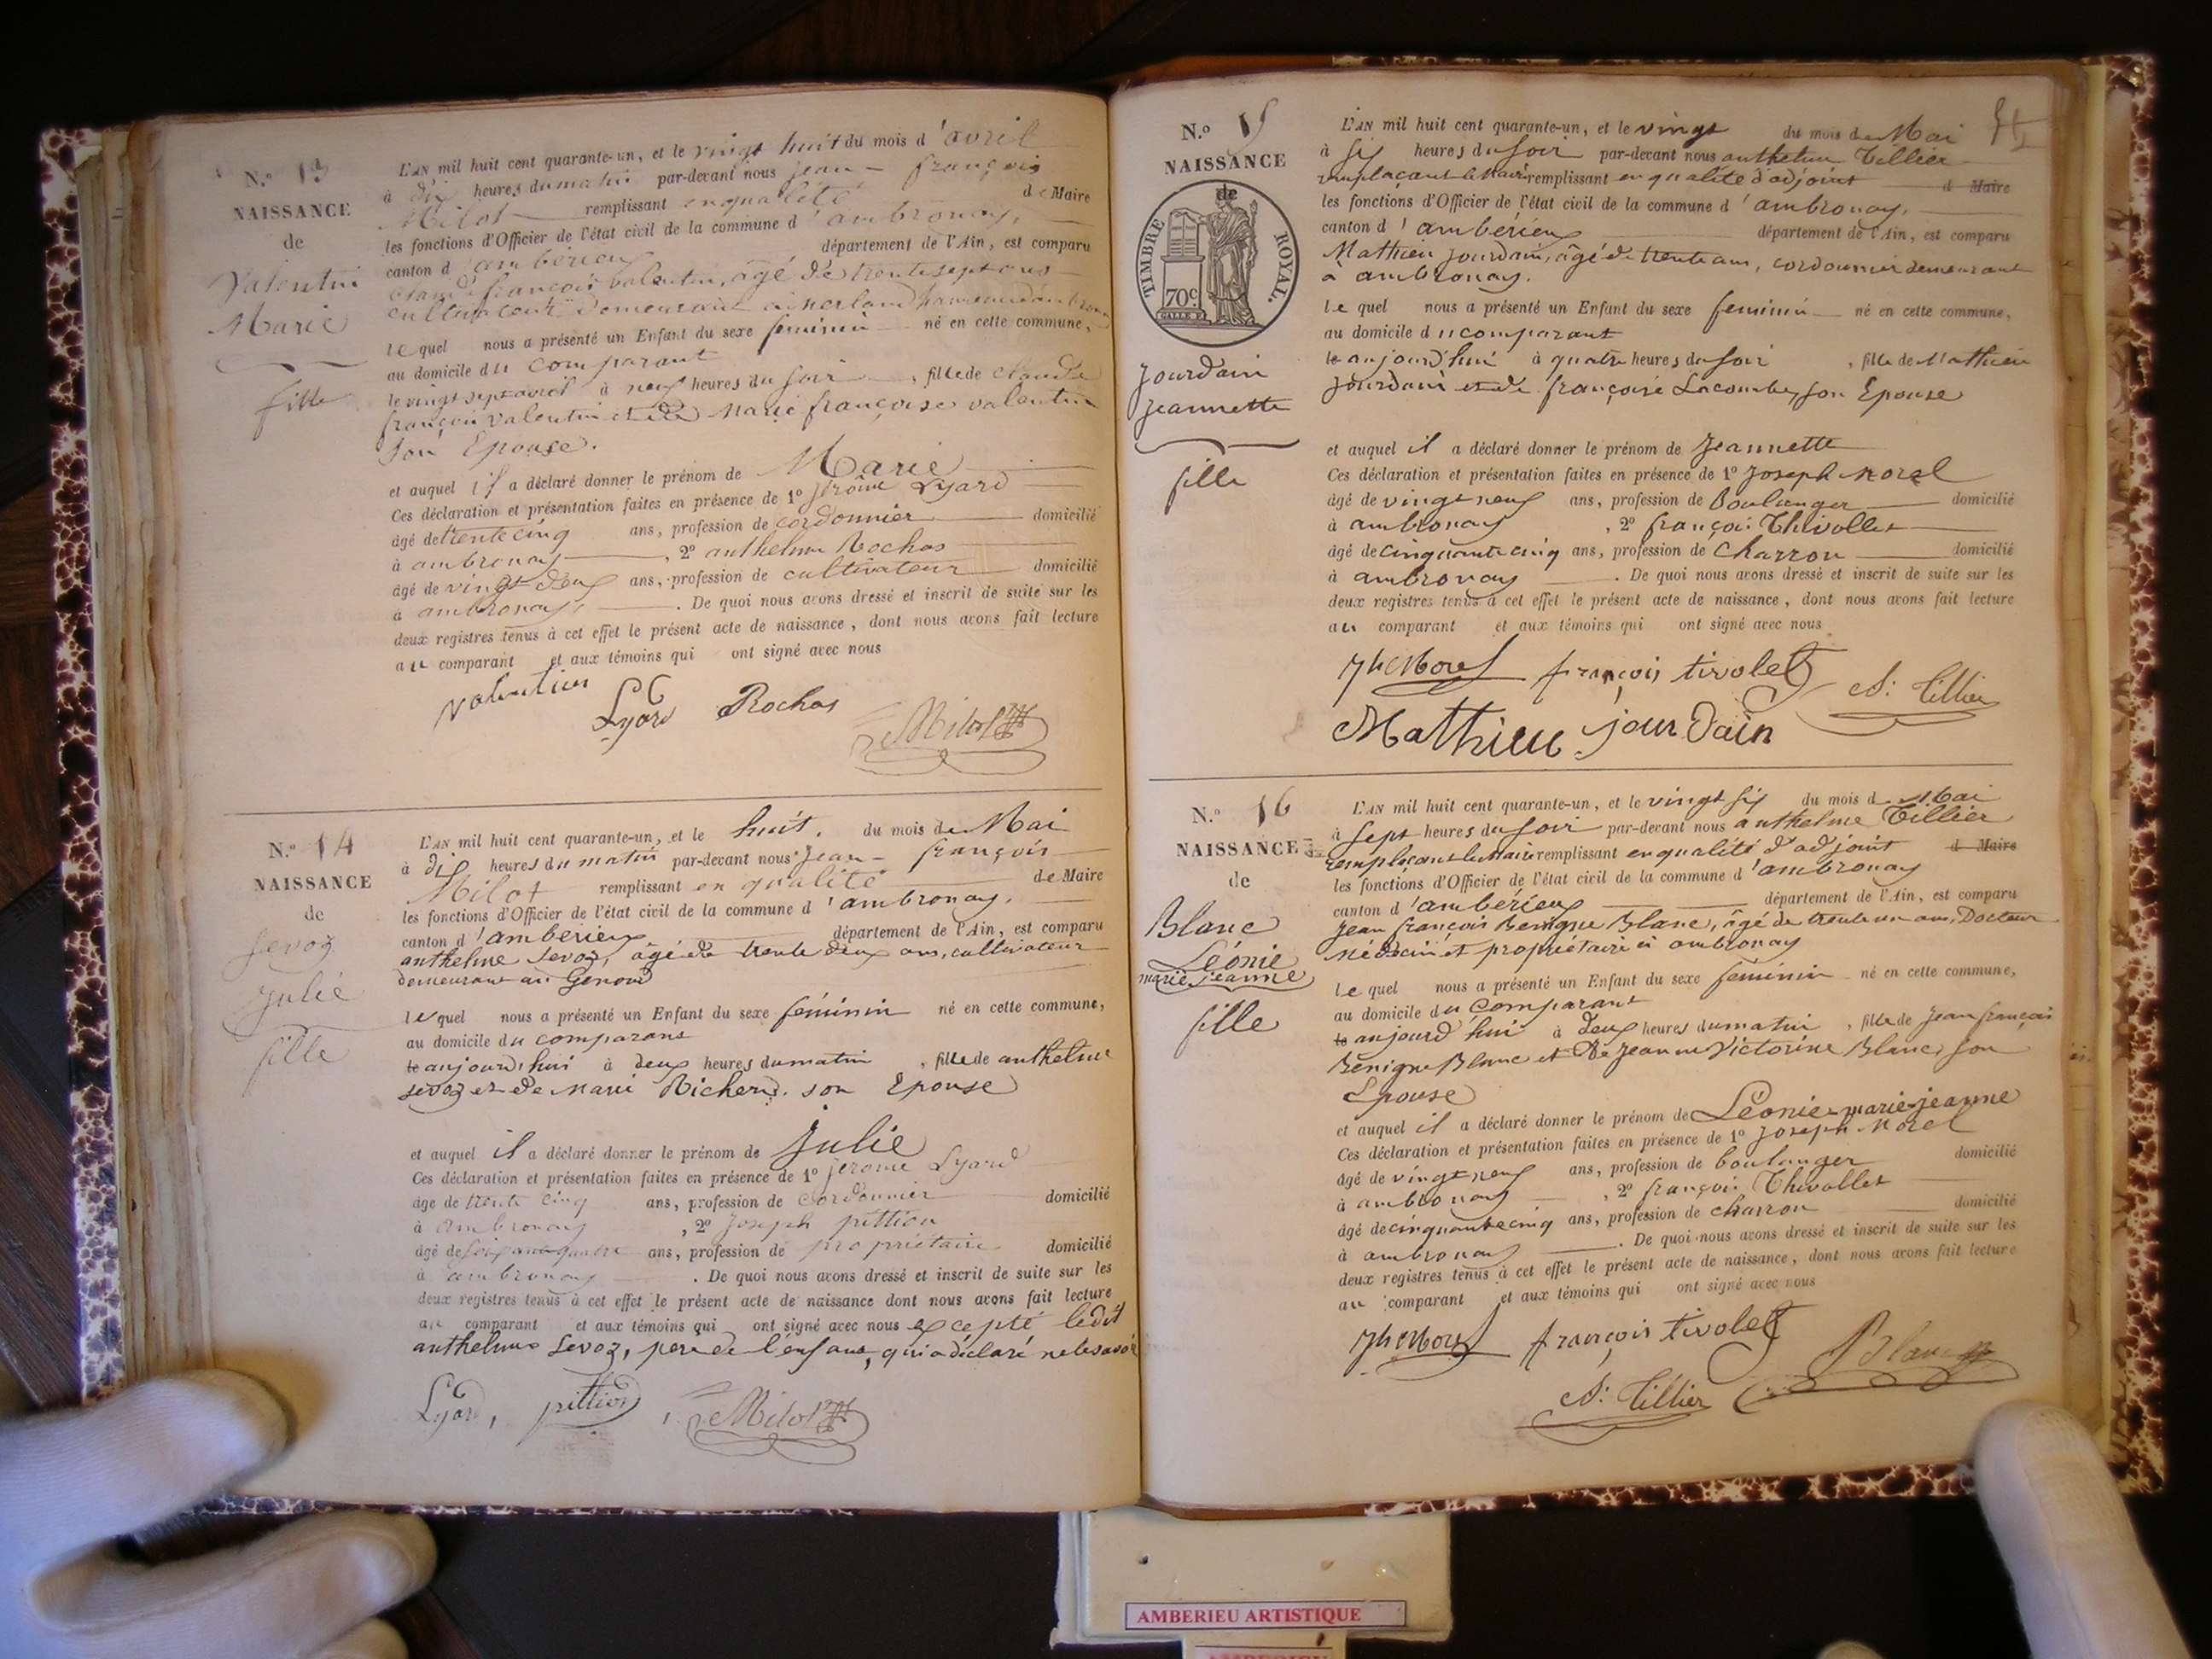 N.º 13
NAISSANCE
de
Valentin
Marie
fille
L'AN mil huit cent quarante-un, et le vingt huit du mois d'avril
à dix heures du matin par-devant nous jean-françois
Milot remplissant en qualité de Maire
les fonctions d'Officier de l'état civil de la commune d'ambronay,
canton d'ambérieux département de l'Ain, est comparu
claude françois valentin, âgé de trente sept ans
cultivateur demeurant à hameau d'ambronay
le quel nous a présenté un Enfant du sexe feminin né en cette commune,
au domicile du comparant
le vingt sept avril à neuf heures du soir, fille de claude
françois valentin et de Marie françoise valentin
son Epouse.
et auquel il a déclaré donner le prénom de Marie
Ces déclaration et présentation faites en présence de 1º jérôme Lyard
âgé de trente cinq ans, profession de cordonnier domicilié
à ambronay, 2º anthelme Rochas
âgé de vingt deux ans, profession de cultivateur domicilié
à ambronay. De quoi nous avons dressé et inscrit de suite sur les
deux registres tenus à cet effet le présent acte de naissance, dont nous avons fait lecture
au comparant et aux témoins qui ont signé avec nous
valentin
Lyard Rochas
Milot
N.º 14
NAISSANCE
de
Sevoz
Julie
fille
L'AN mil huit cent quarante-un, et le huit. du mois de Mai
à dix heures du matin par-devant nous jean-françois
Milot remplissant en qualité de Maire
les fonctions d'Officier de l'état civil de la commune d'ambronay.
canton d'ambérieux département de l'Ain, est comparu
anthelme Sevoz, âgé de trente deux ans, cultivateur
demeurant au Genoud
le quel nous a présenté un Enfant du sexe féminin né en cette commune,
au domicile du comparant
le aujourd'hui à deux heures du matin, fille de anthelme
sevoz et de Marie Richerd. son Epouse
et auquel il a déclaré donner le prénom de Julie
Ces déclaration et présentation faites en présence de 1º jerome Lyard
âgé de trente cinq ans, profession de cordonnier domicilié
à ambronay, 2º Joseph pittion
âgé de soixante quatre ans, profession de propriétaire domicilié
à ambronay. De quoi nous avons dressé et inscrit de suite sur les
deux registres tenus à cet effet le présent acte de naissance dont nous avons fait lecture
au comparant et aux témoins qui ont signé avec nous excepté ledit
anthelme Sevoz, pere de l'enfant, qui a déclaré ne le savoir
Lyard, pittion, Milot
N.º 15
NAISSANCE
de
TIMBRE ROYAL.
70c
Jourdain
Jeannette
fille
L'AN mil huit cent quarante-un, et le vingt du mois de Mai
à six heures du soir par-devant nous anthelme Tillier
remplaçant le Maire remplissant en qualité d'adjoint d Maire
les fonctions d'Officier de l'état civil de la commune d'ambronay,
canton d'ambérieux département de l'Ain, est comparu
Mathieu Jourdain, âgé de trente ans, cordonnier demeurant
à ambronay.
le quel nous a présenté un Enfant du sexe feminin né en cette commune,
au domicile du comparant
le aujourd'hui à quatre heures du soir, fille de Mathieu
Jourdain et de françoise Lacombe, son Epouse
et auquel il a déclaré donner le prénom de Jeannette
Ces déclaration et présentation faites en présence de 1º Joseph Morel
âgé de vingt neuf ans, profession de Boulanger domicilié
à ambronay, 2º françois Thivollet
âgé de cinquante cinq ans, profession de charron domicilié
à ambronay. De quoi nous avons dressé et inscrit de suite sur les
deux registres tenus à cet effet le présent acte de naissance, dont nous avons fait lecture
au comparant et aux témoins qui ont signé avec nous
Jh Morel françois tivolet A. Tillier
Mathieu jourdain
N.º 16
NAISSANCE
de
Blanc
Léonie
marie jeanne
fille
L'AN mil huit cent quarante-un, et le vingt six du mois d Mai
à sept heures du soir par-devant nous anthelme Tillier
remplaçant le Maire remplissant en qualité d'adjoint d Maire
les fonctions d'Officier de l'état civil de la commune d'ambronay
canton d'ambérieux département de l'Ain, est comparu
jean françois Benigne Blanc, âgé de trente un ans, Docteur
médecin et propriétaire à ambronay
le quel nous a présenté un Enfant du sexe féminin né en cette commune,
au domicile du comparant
le aujourd'hui à deux heures du matin, fille de jean françois
Benigne Blanc et de jeanne Victorine Blanc, son
Epouse
et auquel il a déclaré donner le prénom de Léonie-marie-jeanne
Ces déclaration et présentation faites en présence de 1º Joseph Morel
âgé de vingt neuf ans, profession de boulanger domicilié
à ambronay, 2º françois Thivollet
âgé de cinquante cinq ans, profession de charron domicilié
à ambronay. De quoi nous avons dressé et inscrit de suite sur les
deux registres tenus à cet effet le présent acte de naissance, dont nous avons fait lecture
au comparant et aux témoins qui ont signé avec nous
Jh Morel françois tivolet Blanc
A. Tillier
AMBERIEU ARTISTIQUE
AMBERIEU